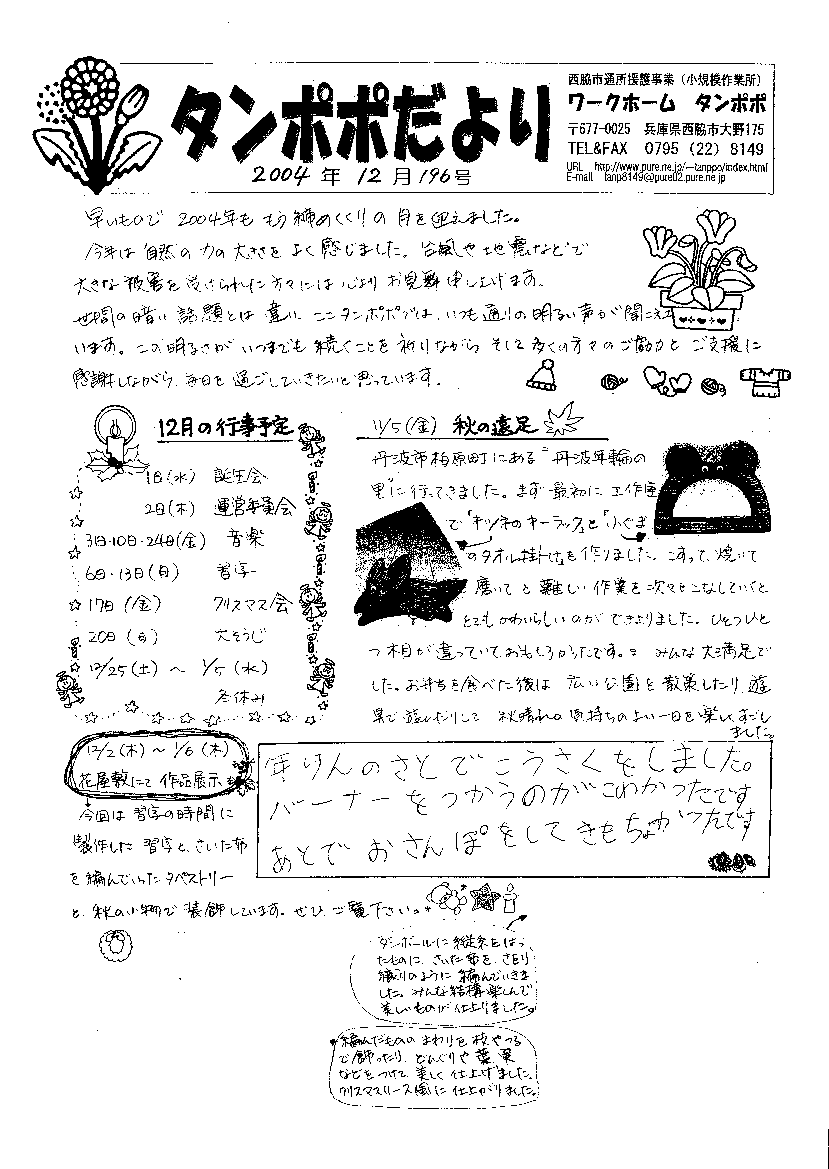 タンポポだより
2004年 12月 196号
西脇市通所援護事業（小規模作業所）
ワークホーム タンポポ
〒677-0025 兵庫県西脇市大野175
TEL&FAX 0795（22）8149
URL http://www.pure.ne.jp/~tanppo/index.html
E-mail tanp8149@pure02.pure.ne.jp
早いもので 2004年も もう締めくくりの月を迎えました。
今年は自然の力の大きさをよく感じました。台風や地震などで
大きな被害を受けられた方々には心よりお見舞申し上げます。
世間の暗い話題とは違い ここタンポポでは、いつも通りの明るい声が聞こえて
います。この明るさがいつまでも続くことを祈りながら そして多くの方々のご協力とご支援に
感謝しながら、毎日を過ごしていきたいと思っています。
12月の行事予定
1日(水) 誕生会
2日(木) 運営委員会
3日・10日・24日(金) 音楽
6日・13日(月) 習字
17日(金) クリスマス会
20日(月) 大そうじ
12/25(土) ～ 1/5(水)
冬休み
11/5(金) 秋の遠足
丹波市柏原町にある"丹波年輪の
里"に行ってきました。まず最初に工作室
で「キツネのキーラック」と「小ぐま
のタオル掛け」を作りました。こすって、焼いて
磨いてと難しい作業を次々とこなしていくと
とてもかわいらしいのができよりました。ひとつひと
つ木目が違っていておもしろかったです。みんな大満足で
した。お弁当を食べた後は 広い公園を散策したり 遊
具で遊んだりして 秋晴れの気持ちのよい一日を楽しくすごし
ました。
12/2(木)～1/6(木)
花屋敷にて 作品展示
今回は習字の時間に
製作した習字と、さいた布
を編んでいったタペストリー
と、秋の小物で装飾しています。ぜひ、ご覧下さい。
年りんのさとでこうさくをしました。
バーナーをつかうのがこわかったです
あとでおさんぽをしてきもちよかったです
ダンボールに縦糸をはっ
たものに、さいた布を、さをり
織りのように編んでいきま
した。みんな結構楽しんで
美しいものが仕上りました。
編んだもののまわりを枝やつる
で飾ったり、どんぐりや葉、実
などをつけて美しく仕上げました。
クリスマスリース風に仕上がりました。